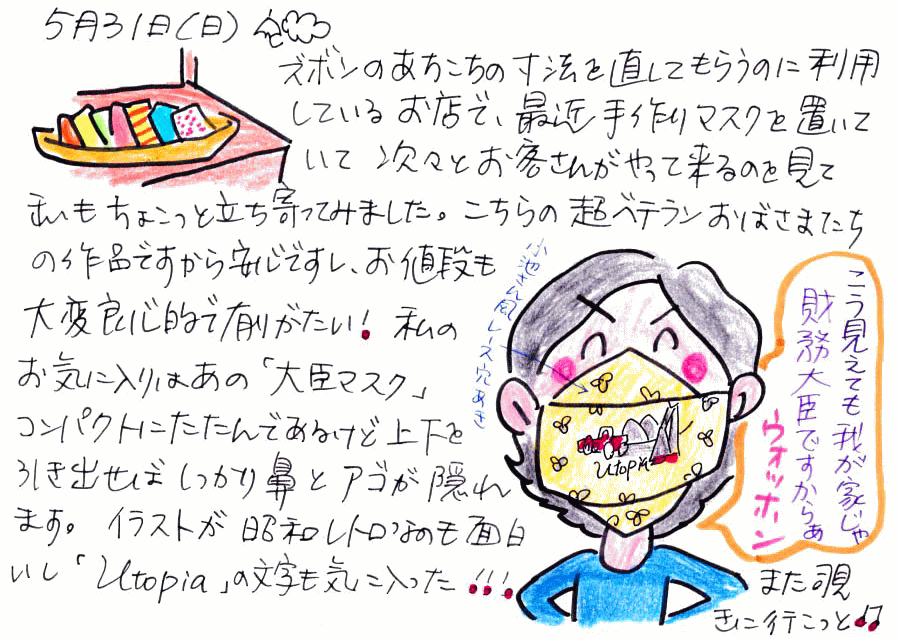 5月31日(日)
ズボンのあちこちの寸法を直してもらうのに利用
しているお店で、最近手作りマスクを置いて
いて次々とお客さんがやって来るのを見て
私もちょこっと立ち寄ってみました。こちらの超ベテランおばさまたち
の作品ですから安心ですし、お値段も
大変良心的で有りがたい!私の
お気に入りはあの「大臣マスク」
コンパクトにたたんであるけど上下を
引き出せばしっかり鼻とアゴが隠れ
ます。イラストが昭和レトロなのも面白
いし「Utopia」の文字も気に入った!!!
レース穴あき
Utopia
こう見えても我が家じゃ
財務大臣ですからぁ
ウォッホーン
また覗
きに行こっと♫